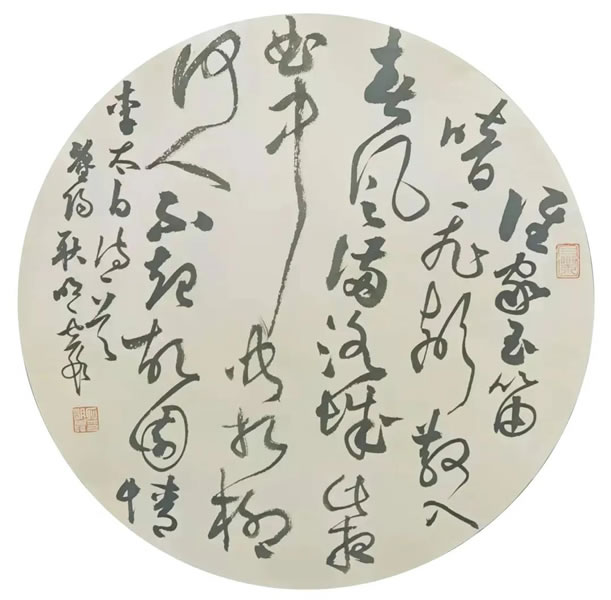 誰家玉笛
暗飛聲散入
春風滿洛城此夜
曲中聞折柳
何人不起故園情
李太白詩一首
耿明